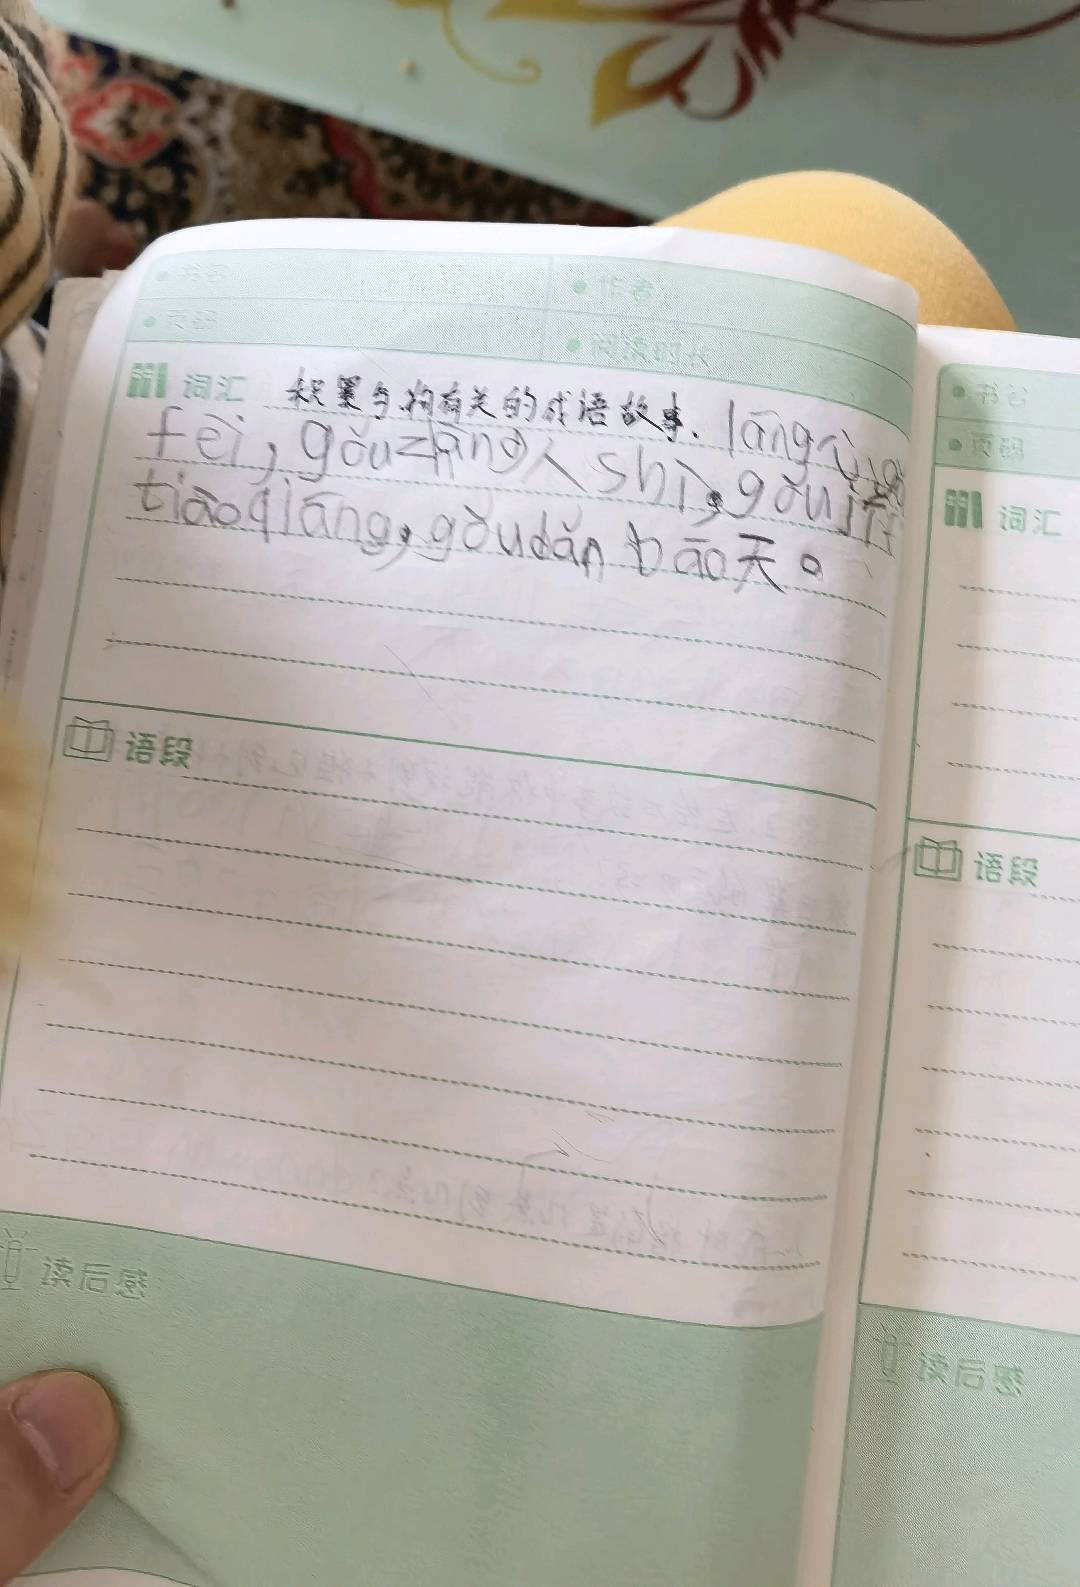 书名
作者
页码
阅读时长
词汇 积累与狗有关的成语故事. láng
fèi, gǒuzhàng人shì, gǒují
tiàoqiáng, gǒudǎn bāo天。
语段
读后感
书名
页码
词汇
语段
读后感